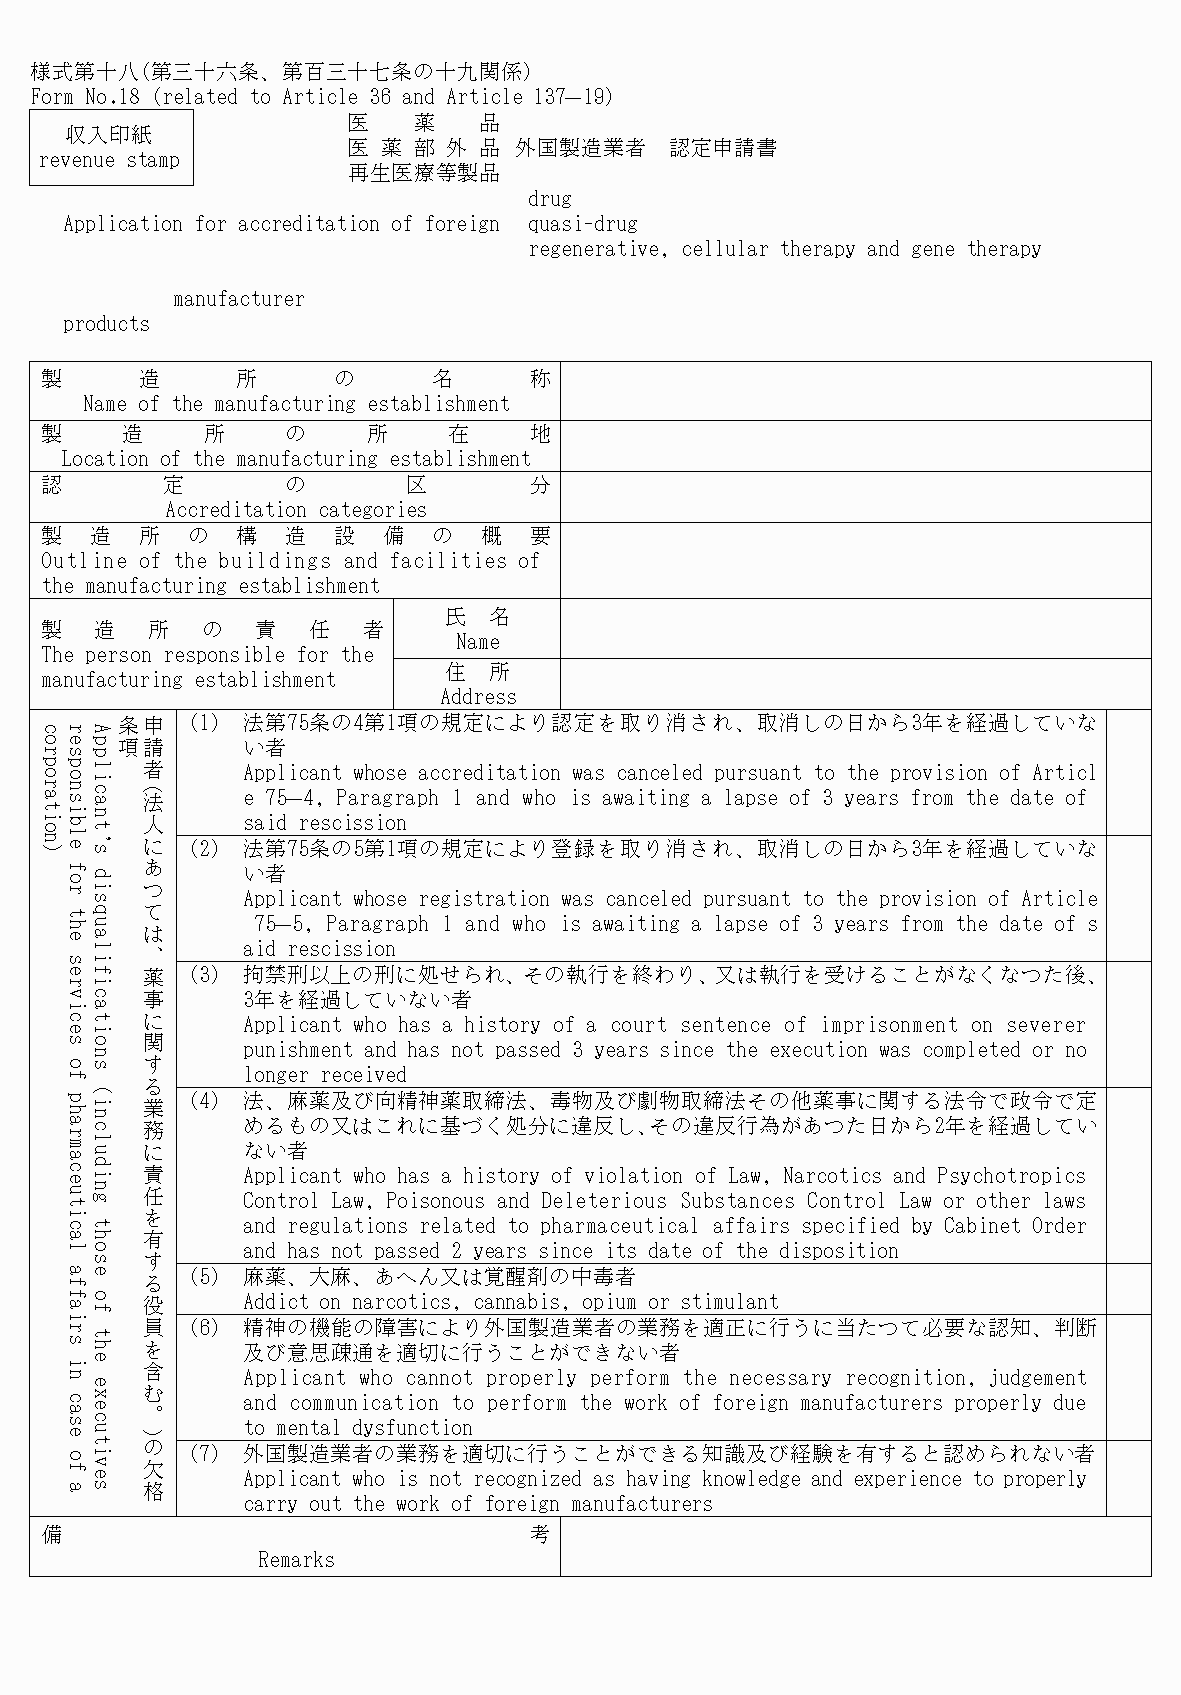 様式第十八(第三十六条、第百三十七条の十九関係)
Form No.18 (related to Article 36 and Article 137—19)
収入印紙
revenue stamp
医薬品
医薬部外品 外国製造業者 認定申請書
再生医療等製品
drug
Application for accreditation of foreign quasi-drug
regenerative, cellular therapy and gene therapy
manufacturer
products
製造所の名称
Name of the manufacturing establishment
製造所の所在地
Location of the manufacturing establishment
認定の区分
Accreditation categories
製造所の構造設備の概要
Outline of the buildings and facilities of
the manufacturing establishment
製造所の責任者
The person responsible for the
manufacturing establishment
氏名
Name
住所
Address
申請者(法人にあつては、薬事に関する業務に責任を有する役員を含む。)の欠格
条項
Applicant's disqualifications (including those of the executives
responsible for the services of pharmaceutical affairs in case of a
corporation)
(1) 法第75条の4第1項の規定により認定を取り消され、取消しの日から3年を経過していな
い者
Applicant whose accreditation was canceled pursuant to the provision of Articl
e 75—4, Paragraph 1 and who is awaiting a lapse of 3 years from the date of
said rescission
(2) 法第75条の5第1項の規定により登録を取り消され、取消しの日から3年を経過していな
い者
Applicant whose registration was canceled pursuant to the provision of Article
75—5, Paragraph 1 and who is awaiting a lapse of 3 years from the date of s
aid rescission
(3) 拘禁刑以上の刑に処せられ、その執行を終わり、又は執行を受けることがなくなつた後、
3年を経過していない者
Applicant who has a history of a court sentence of imprisonment on severer
punishment and has not passed 3 years since the execution was completed or no
longer received
(4) 法、麻薬及び向精神薬取締法、毒物及び劇物取締法その他薬事に関する法令で政令で定
めるもの又はこれに基づく処分に違反し、その違反行為があつた日から2年を経過してい
ない者
Applicant who has a history of violation of Law, Narcotics and Psychotropics
Control Law, Poisonous and Deleterious Substances Control Law or other laws
and regulations related to pharmaceutical affairs specified by Cabinet Order
and has not passed 2 years since its date of the disposition
(5) 麻薬、大麻、あへん又は覚醒剤の中毒者
Addict on narcotics, cannabis, opium or stimulant
(6) 精神の機能の障害により外国製造業者の業務を適正に行うに当たつて必要な認知、判断
及び意思疎通を適切に行うことができない者
Applicant who cannot properly perform the necessary recognition, judgement
and communication to perform the work of foreign manufacturers properly due
to mental dysfunction
(7) 外国製造業者の業務を適切に行うことができる知識及び経験を有すると認められない者
Applicant who is not recognized as having knowledge and experience to properly
carry out the work of foreign manufacturers
備考
Remarks